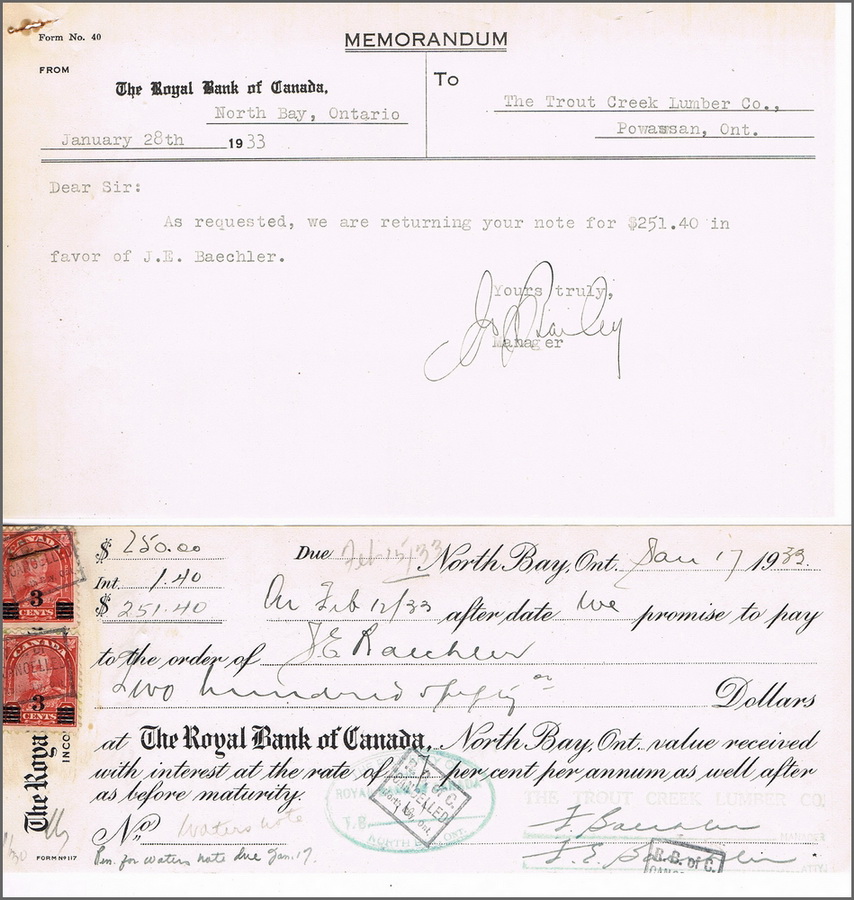 Form No. 40
MEMORANDUM
FROM
To
The Royal Bank of Canada.
North Bay, Ontario
The Trout Creek Lumber Co.,
January 28th 1933
Powassan, Ont.
Dear Sir:
As requested, we are returning your note for $251.40 in
favor of J.E. Baechler.
Yours truly,
Manager
$ 250.00
Due Feb 15/33 North Bay, Ont. Jan 17 1933.
Int. 1.40
$ 251.40
On Feb 12/33 after date We promise to pay
to the order of J E Baechler
Two hundred & fifty Dollars
at The Royal Bank of Canada, North Bay, Ont. value received
with interest at the rate of per cent per annum as well after
as before maturity.
THE TROUT CREEK LUMBER CO.
No. Waters note
J Baechler
MANAGER
Ren. for Waters note due Jan. 17.
J. E. Baechler
ATTY
FORM Nº 117
The Roya
INCO
CANADA
3
CENTS
CANADA
3
CENTS
CANCELLED
North Bay, Ont.
NORTH BAY, ONT.
R.B. of C.